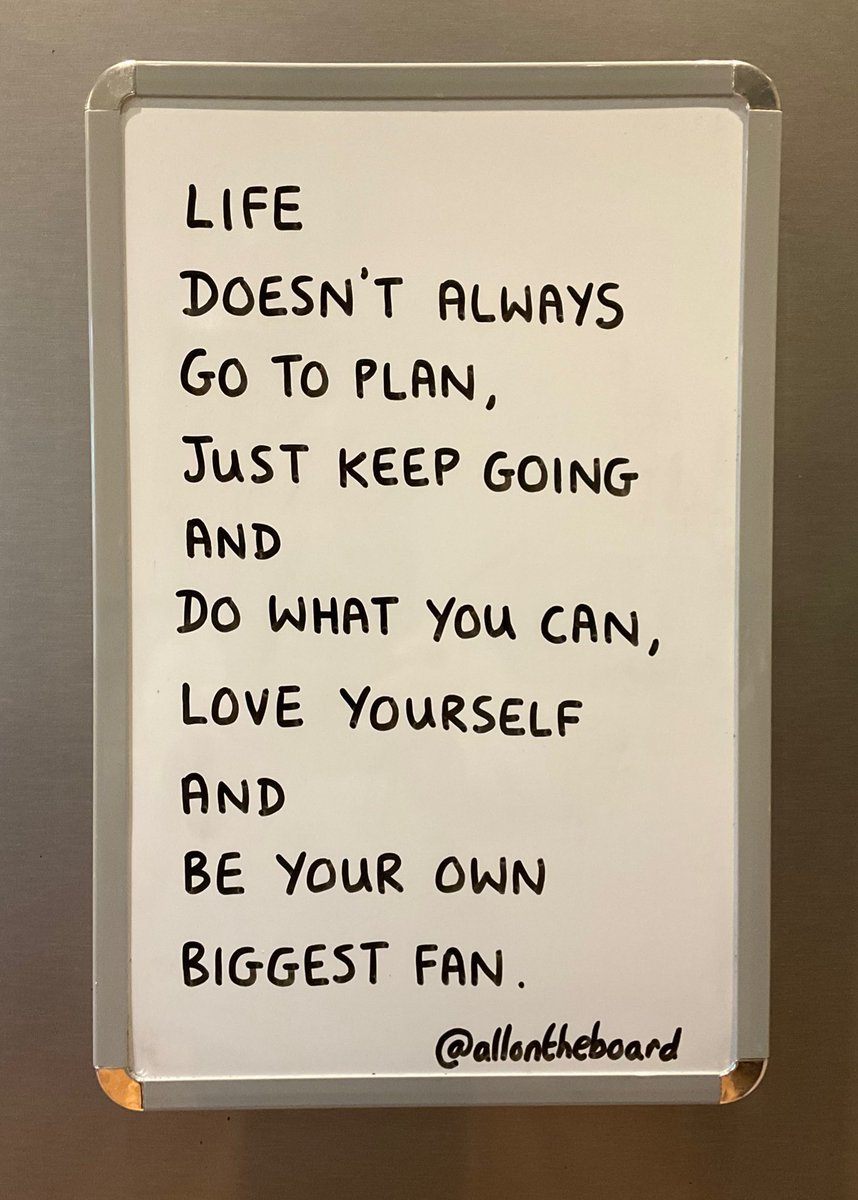 LIFE
DOESN'T ALWAYS
GO TO PLAN,
JUST KEEP GOING
AND
DO WHAT YOU CAN,
LOVE YOURSELF
AND
BE YOUR OWN
BIGGEST FAN.
@allontheboard